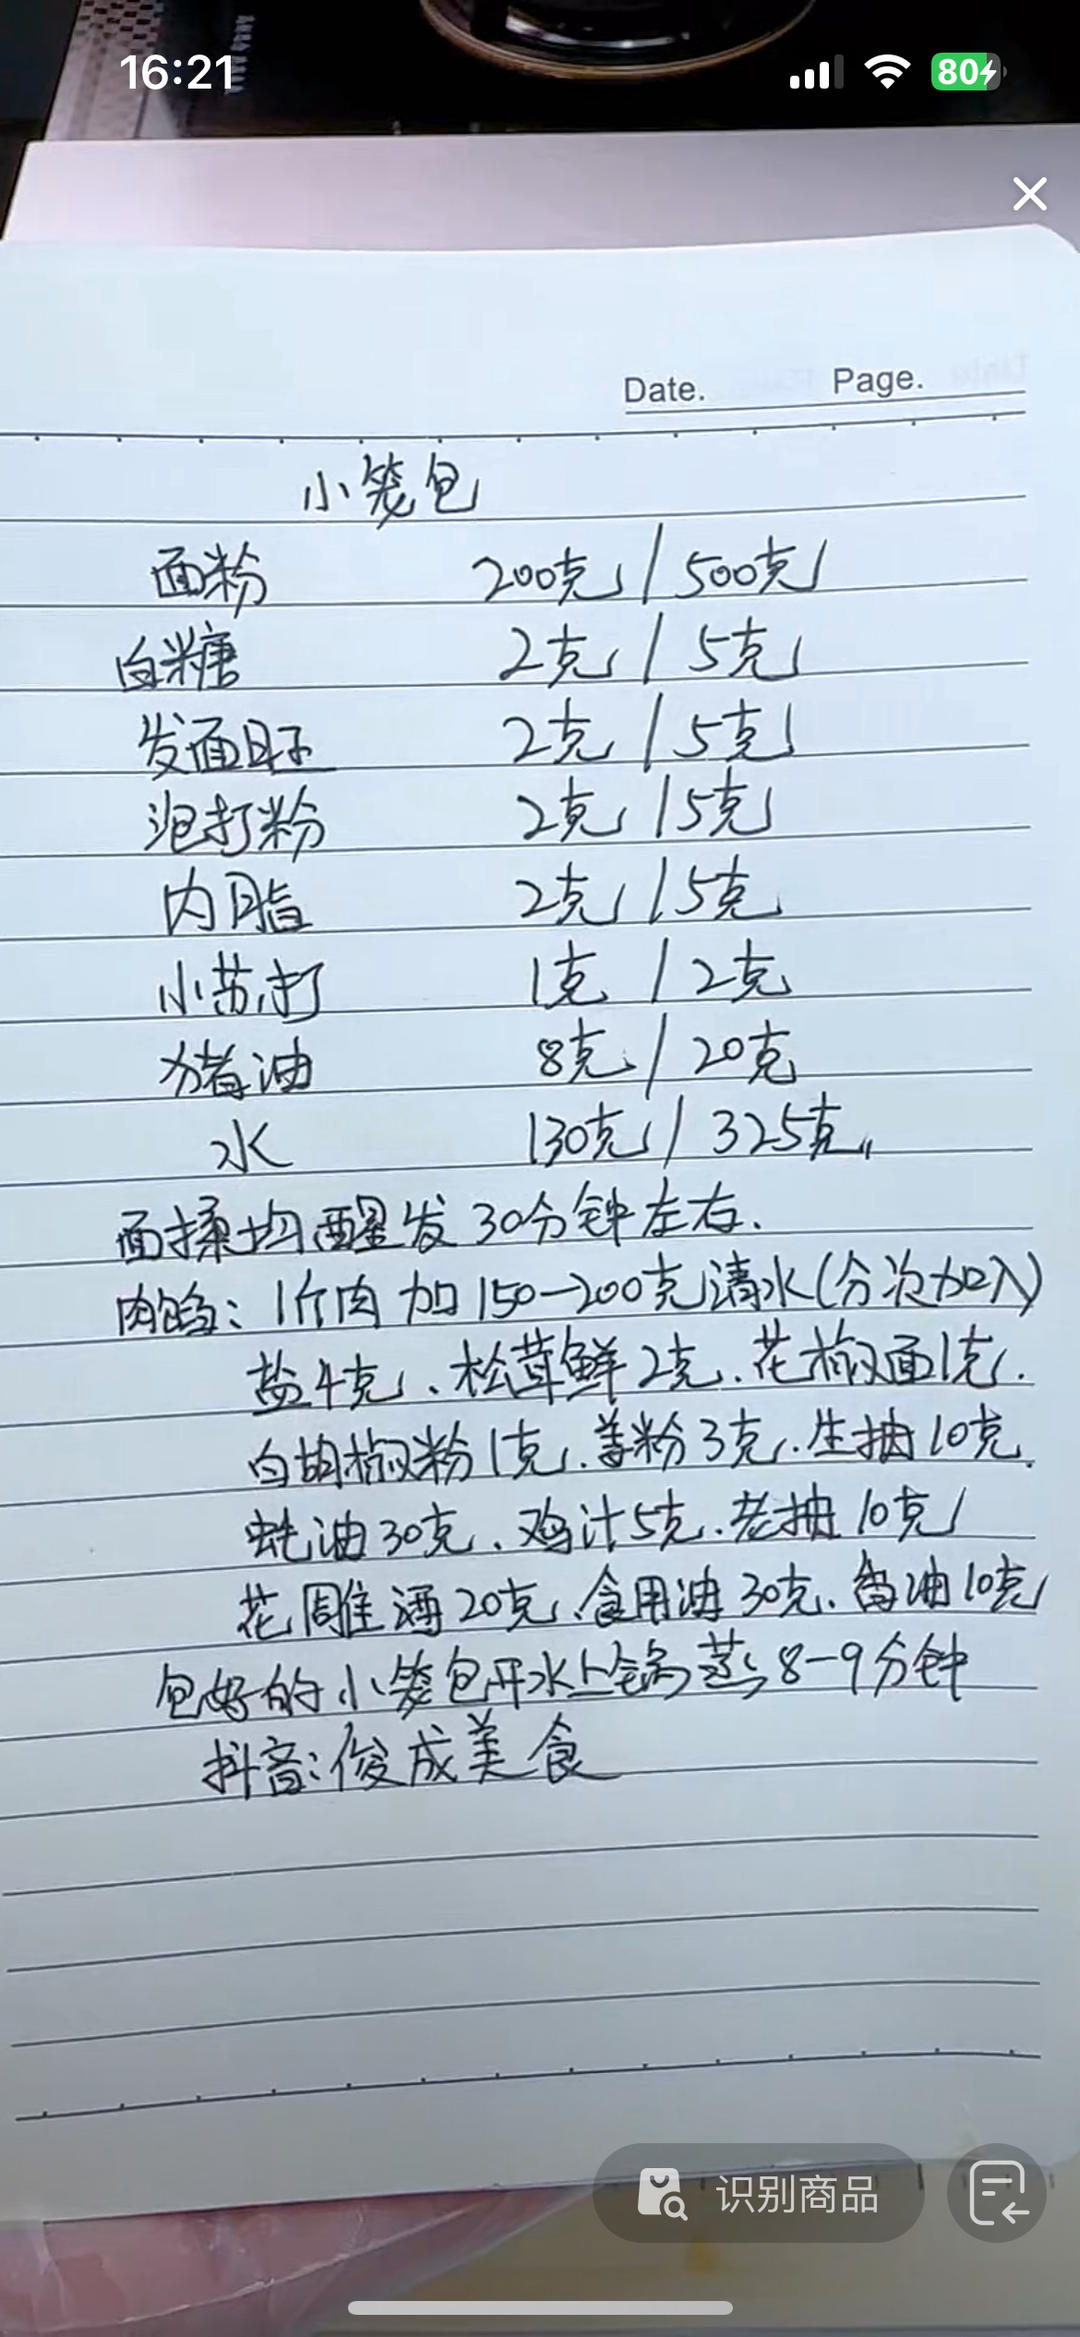 16:21
80
Date. Page.
小笼包
面粉 200克/500克
白糖 2克/5克
发面旺 2克/5克
泡打粉 2克/5克
内脂 2克/5克
小苏打 1克/2克
猪油 8克/20克
水 130克/325克
面揉均醒发30分钟左右.
肉馅:1斤肉加150-200克清水(分次加入)
盐4克、松茸鲜2克、花椒面1克.
白胡椒粉1克、姜粉3克、生抽10克.
蚝油30克、鸡汁5克、老抽10克
花雕酒20克、食用油30克、香油10克
包好的小笼包开水上锅蒸8-9分钟
抖音:俊成美食
识别商品